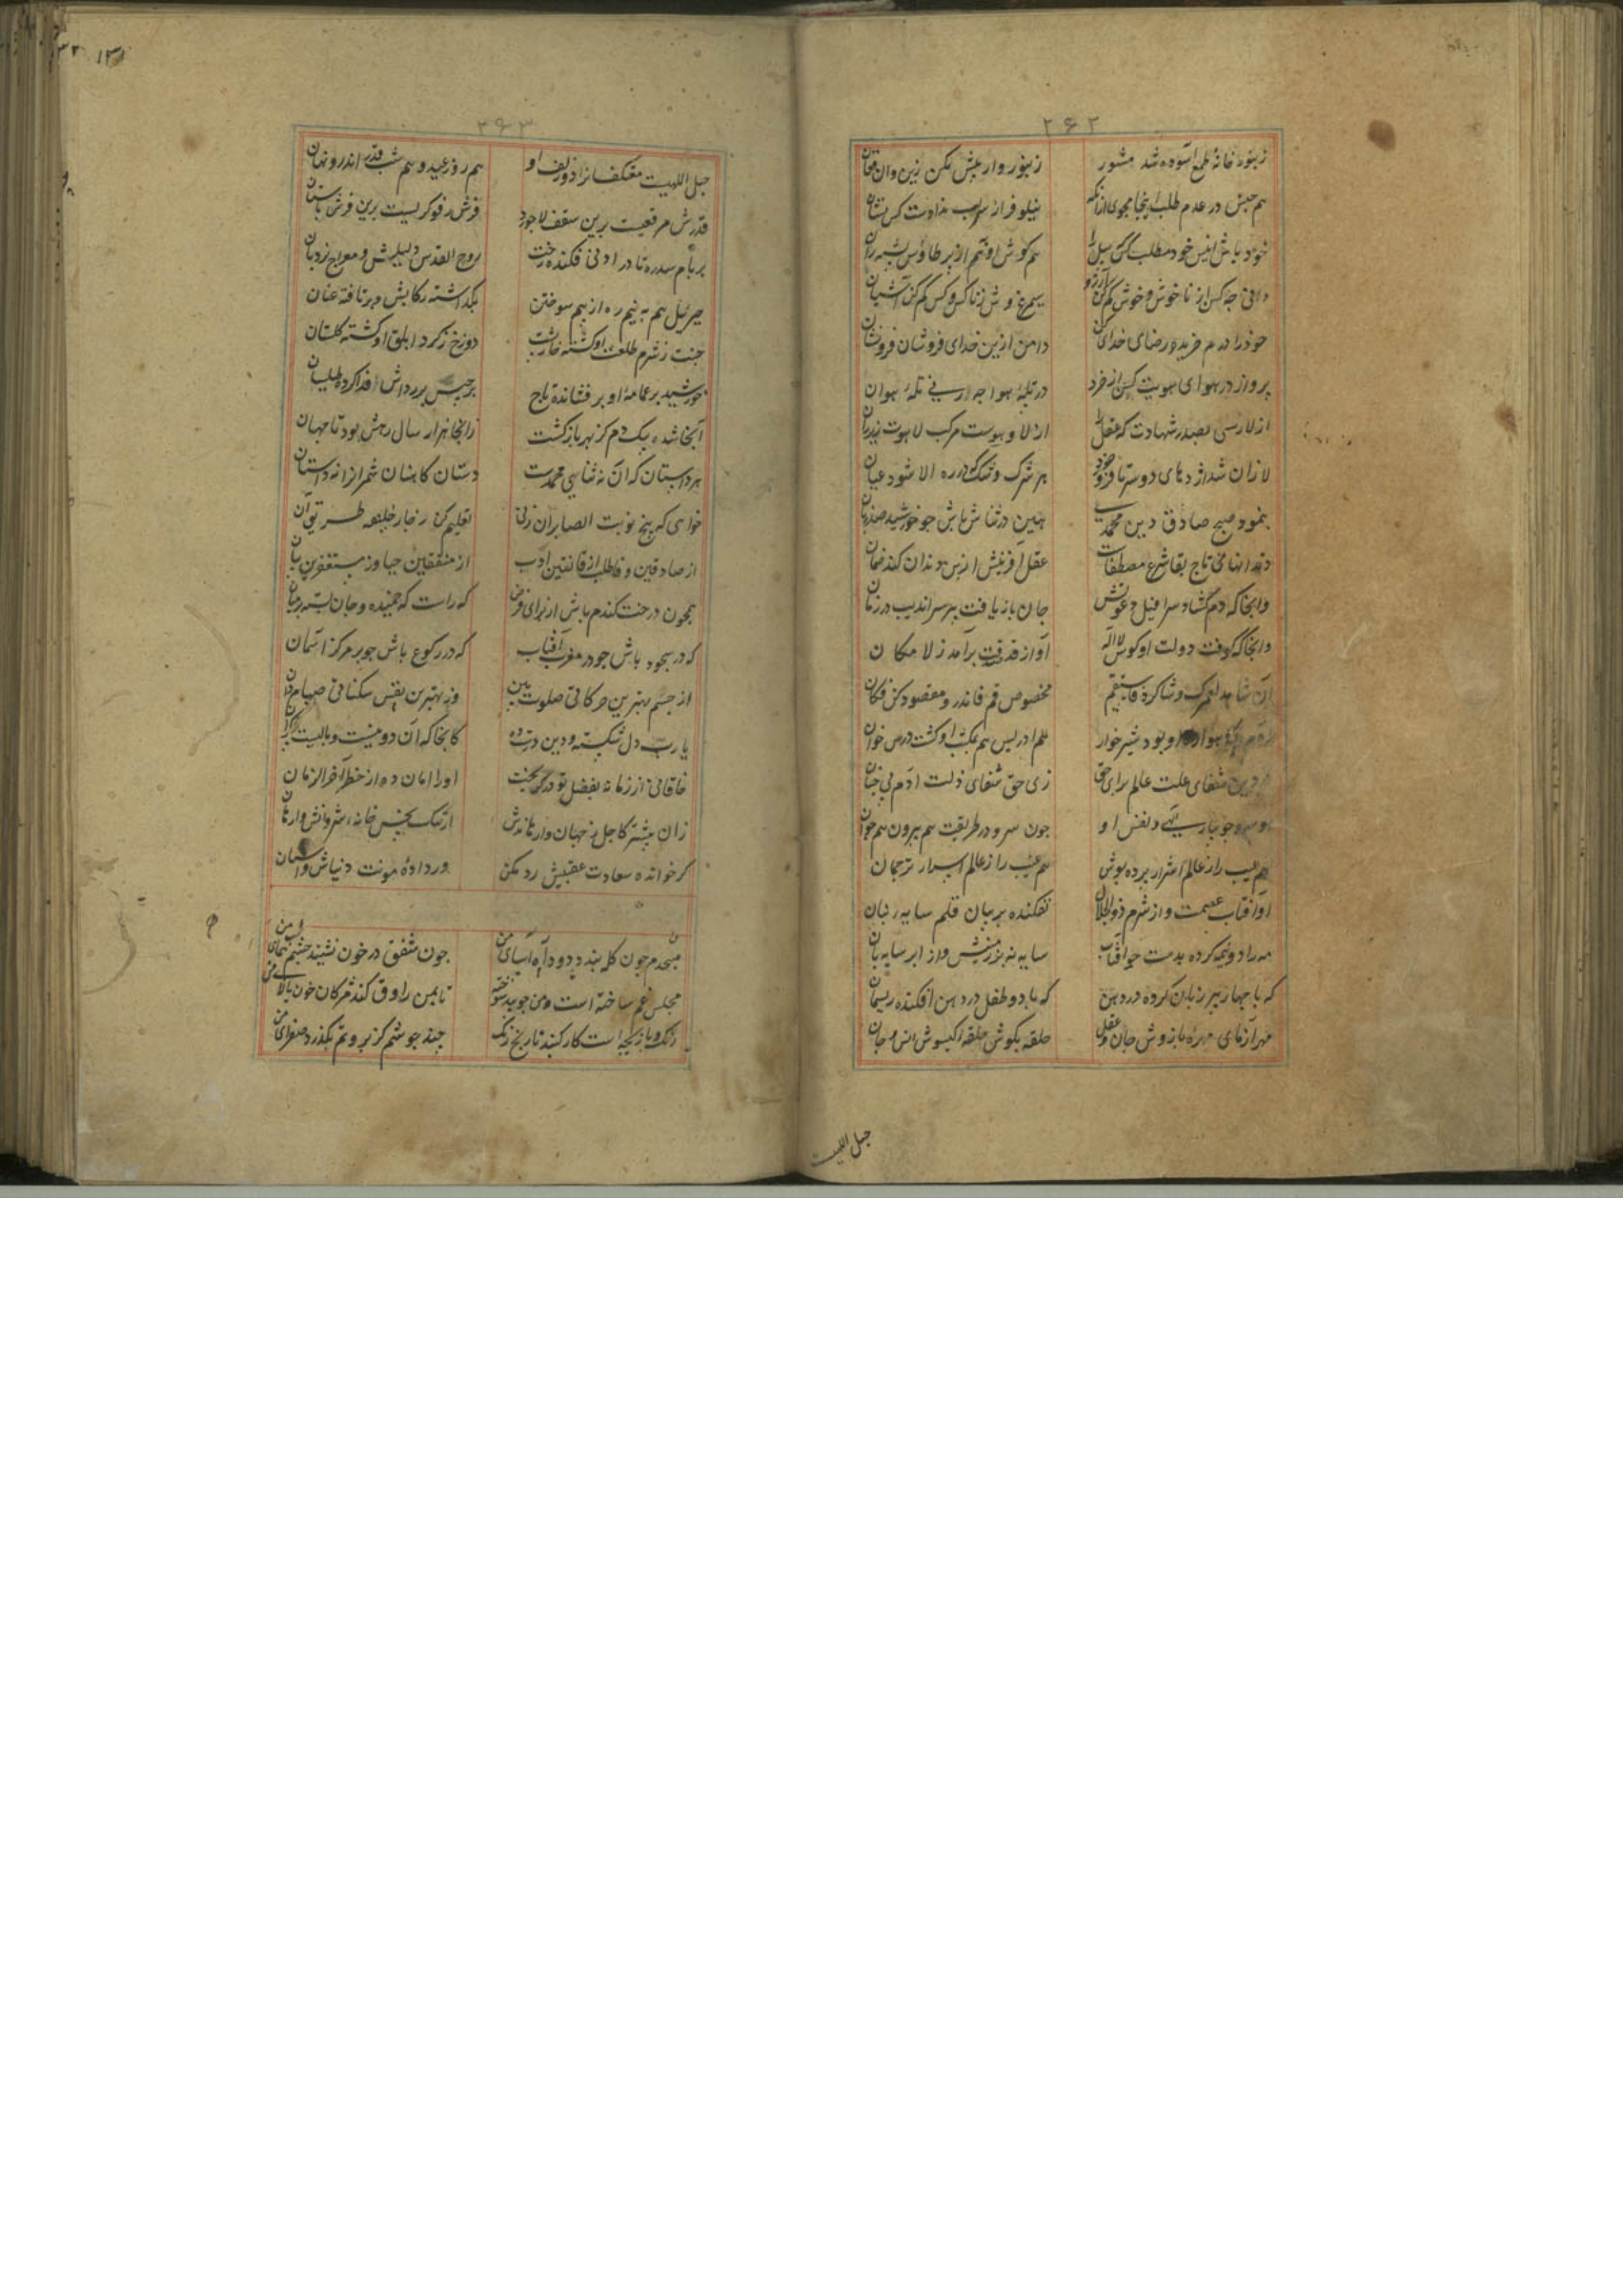 ۲۶۲
زنبور خانهٔ طمع آسوده شد مشور زنبوروار بیش مکن زین و آن فغان
هم جنس در عدم طلب اینجا مجوی از آنکه نیلوفر از سراب نداد است کس نشان
خود باش انیس خود مطلب کس
دانی چه کن از ناخوش و خوش کم کن آرزو سیمرغ وش ز ناکس و کس کم کن آشیان
خود را درم خرید رضای خدای کن دامن ازین خدای فروشان فرونشان
پرواز در هوای هویت کن از خرد
از لا رسی بصدر شهادت که عقل را از لا و هوست مرکب لاهوت
لا زان شد اژدهای دو سر تا فرو خورد هر شرک و شک که در ره الا شود عیان
بنمود صبح صادق دین محمدی هین در ثناش باش چو خورشید صد زبان
دندانهای تاج بقا شرع مصطفاست عقل آفرینش از بن دندان کند ضمان
وانجا که دم گشاد سرافیل دعوتش جان باز یافت پیر سراندیب در زمان
وانجا که کوفت دولت او کوس لا اله آواز قد صدقت برآمد ز لا مکان
آن شاهد لعمرک و شاکرد فاستقم مخصوص قم فانذر و مقصود کن فکان
او بود شیر خوار هم ادریس هم بمکتب او گشت درس خوان
شفای علت عالم برای حق زی حق شفای ذلت آدم
دلفس او جون سرو در طریقت هم پیر و هم جوان
هم عیب را ز عالم اسرار پرده پوش هم غیب را ز عالم اسرار ترجمان
او آفتاب عصمت و از شرم ذو الجلال نفکنده بر بیان قلم سایه زبان
مه را دو نیمه کرده بدست چو آفتاب سایه نه بر زمینش و از ابر سایه بان
که با چهار پیر زبان کرده در دهن که با دو طفل در دهن افکنده ریسمان
مهر آزمای مهره بازوش جان و عقل حلقه بگوش حلقه گیسوش انس و جان
حبل اللهیست
۲۶۳
حبل اللهیست معتکفان را دو زلف او هم روز عید و هم شب قدر اندرو نهان
قدرش مرقعیست برین سقف لاجورد فرشش رفوگریست برین فرش باستان
بر بام سدره تا در ادنی فکنده رخت روح القدس دلیلش و معراج نردبان
جبریل هم به نیم ره از بیم سوختن بگذاشته رکابش و برتافته عنان
جنت ز شرم طلعت او گشته خاربست دوزخ ز گرد ابلق او گشته گلستان
خورشید بر عمامهٔ او بر فشانده تاج برجیس بر رداش فدا کرده طیلسان
آنجا شده بیک دم کز بهر بازگشت زانجا هزار سال رهش بود تا جهان
هر داستان که آن نه ثنای محمدست دستان کاهنان شمر آنرا نه داستان
خواهی که پنج نوبت الصابران زنی تعلیم کن ز چار خلیفه طریق آن
از صادقین وفا طلب از قانتین ادب از منفقین حیا وز مستغفرین بیان
همچون درخت گندم باش از برای فرض که راست که خمیده و جان بسته بر میان
که در سجود باش چو در مغرب آفتاب که در رکوع باش چو بر مرکز آسمان
از جسم بهترین حرکاتی صلوت بین وز بهترین نفس سکناتی صیام دان
یا رب دل شکسته و دین درست ده کانجا که آن دو نیست وبالیست بیکران
خاقانی از زمانه بفضل تو در گریخت او را امان ده از خطر آخر الزمان
زان پیشتر کاجل ز جهان وارهاندش از ننگ حبس خانه شروانش وارهان
گر خوانده سعادت عقبیش رد مکن ور داده مونت دنیاش واستان
صبحدم چون کله بندد دود آه آسای من جون شفق در خون نشیند چشم شب پیمای من
مجلس غم ساخته است و من چو بید سوخته تا بمن راوق کند مژگان خون پالای من
رنگ و بازیچه است کار گنبد نارنج رنگ چند جوشم کز بروتم نگذرد صفرای من